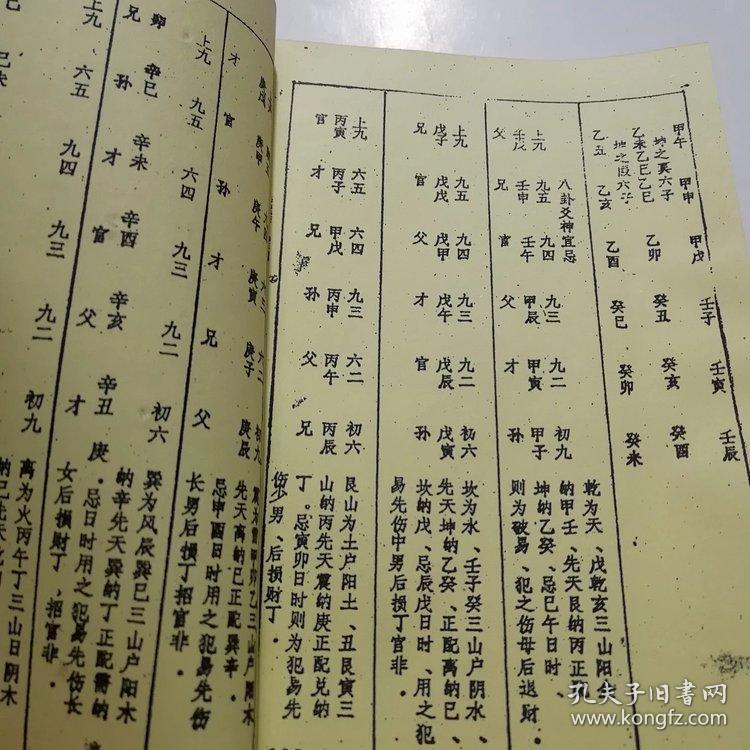 甲午 甲申 甲戌 壬子 壬寅 壬辰
坤之真六子
乙未乙巳乙巳 乙卯 癸丑 癸亥 癸酉
坤之假六子
乙丑 乙亥 乙酉 癸巳 癸卯 癸未
八卦爻神宜忌
上九 九五 九四 九三 九二 初九
壬戌 壬申 壬午 甲辰 甲寅 甲子
父 兄 官 父 才 孙
乾为天、戊乾亥三山阳土
纳甲壬、先天艮纳丙正配
坤纳乙癸、忌巳午日时、
则为破易、犯之伤母后退财.
上九 九五 九四 九三 九二 初六
戊子 戊戌 戊甲 戊午 戊辰 戊寅
兄 官 父 才 官 孙
坎为水、壬子癸三山户阴水、
先天坤纳乙癸、正配离纳巳、
坎纳戊、忌辰戊日时、用之犯
易先伤中男后损丁官非.
上九 六五 六四 九三 六二 初六
丙寅 丙子 甲戌 丙申 丙午 丙辰
官 才 兄 孙 父 兄
艮山为土户阳土、丑艮寅三
山纳丙先天震纳庚正配兑纳
丁。忌寅卯日时则为犯易先
伤少男、后损财丁.
九三 六二 初九
庚申 庚午 庚寅 庚子 庚辰
才 官 孙 才 兄 父
先天离纳巳正配巽辛.
忌申酉日时用之犯易先伤
长男后损丁招官非.
上九 九五 六四 九三 九二 初六
辛巳 辛未 辛酉 辛亥 辛丑
卯 兄 孙 才 官 父 才
巽为风辰巽巳三山户阳木
纳辛先天巽纳丁正配需纳
庚.忌日时用之犯易先伤长
女后损财丁,招官非.
上九 六五 九四 九三 九二 初九
离为火丙午丁三山日阴木
孔夫子旧书网
www.kongfz.com